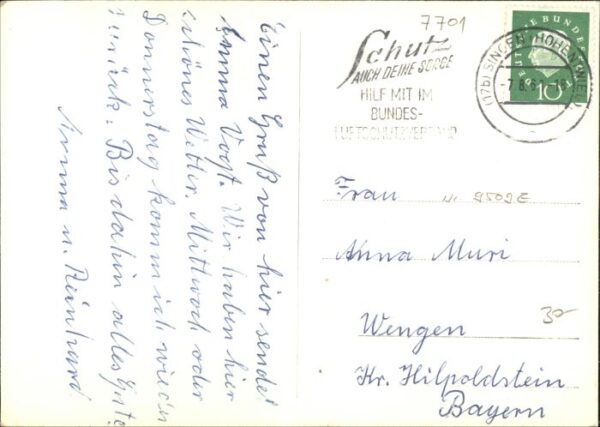 Einen Gruß von hier sendet
Anna Vogt. Wir haben hier
schönes Wetter. Mittwoch oder
Donnerstag komm ich wieder
zurück. Bis dahin alles Gute
Anna u. Reinhard
7701
Schutz
AUCH DEINE SORGE
HILF MIT IM
BUNDES-
LUFTSCHUTZVERBAND
DEUTSCHE BUNDESPOST
10
(17b) SINGEN (HOHENTWIEL)
-7.8.61
Frau
9509E
Anna Muri
30-
Wengen
Kr. Hilpoldstein
Bayern